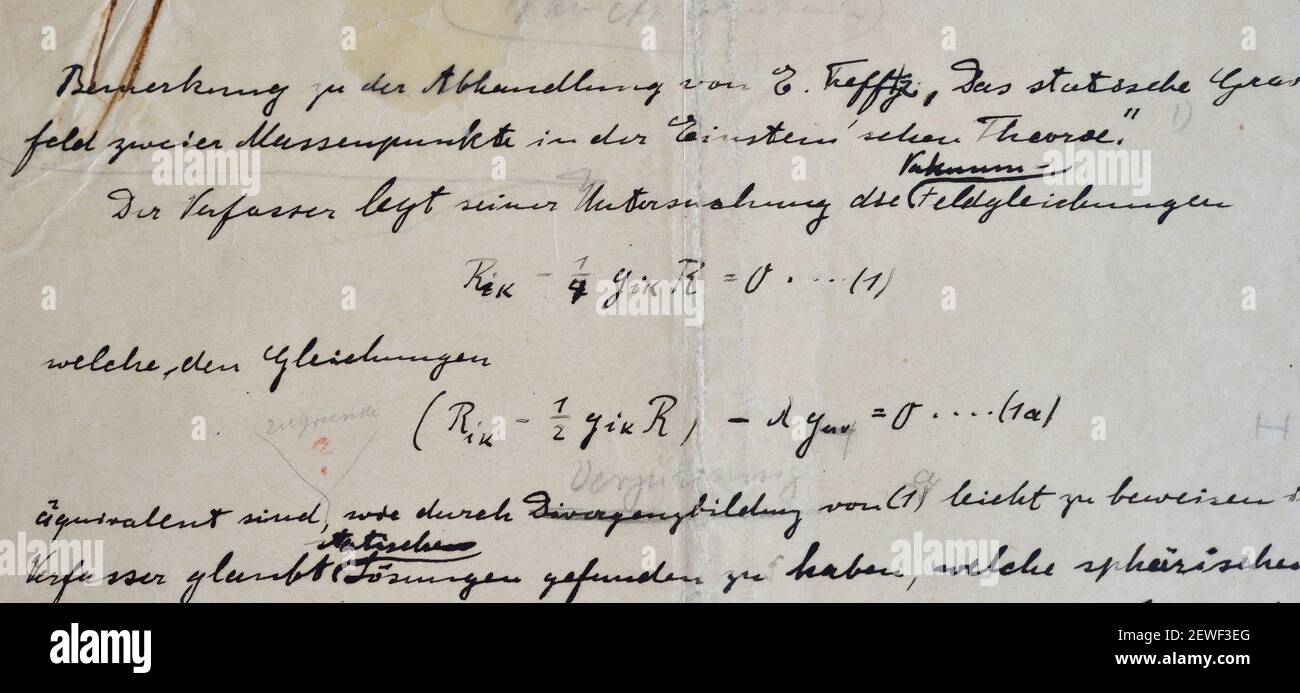 Bemerkung zu der Abhandlung von E. Trefftz „Das statische Grav
feld zweier Massenpunkte in der Einstein'schen Theorie". 1)
Vakuum-
Der Verfasser legt seiner Untersuchung die Feldgleichungen
Rik - 1/4 gik R = 0 .... (1)
welche, den Gleichungen
(Rik - 1/2 gik R) - λ gμν = 0 .... (1a)
zugrunde
?
äquivalent sind, wie durch Divergenzbildung von (1a) leicht zu beweisen i
statische
Verfasser glaubt Lösungen gefunden zu haben, welche sphärischen
alamy
Image ID: 2EWF3EG
www.alamy.com